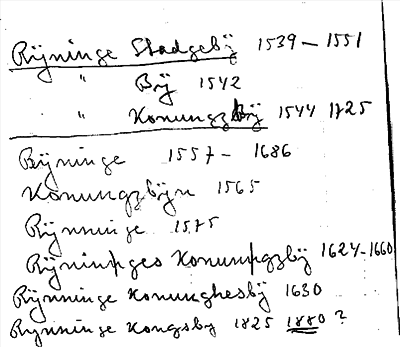 Rÿninge Stadgebÿ 1539 – 1551
" Bÿ 1542
" Konungzbÿ 1544 1725
Rÿninge 1557 – 1686
Konungzbÿn 1565
Rÿnninge 1575
Rÿninges Konungzbÿ 1624–1660
Rÿnninge Konunghesbÿ 1630
Rynninge Kongsby 1825 1880 ?